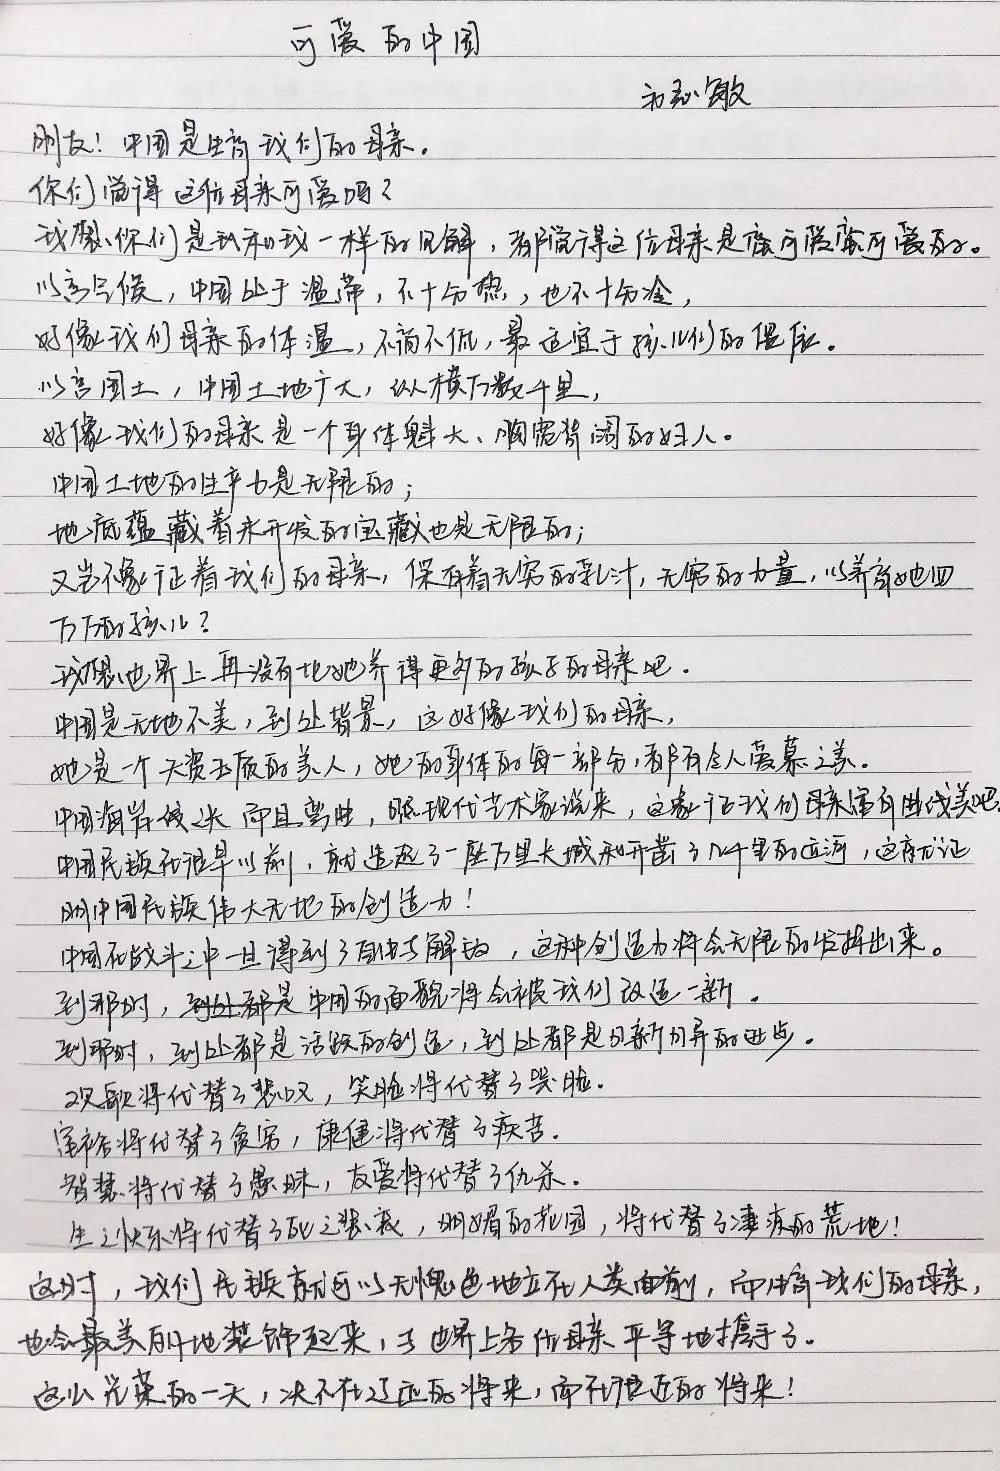 可爱的中国
方志敏
朋友！中国是生育我们的母亲。
你们觉得这位母亲可爱吗？
我想你们是和我一样的见解，都觉得这位母亲是蛮可爱蛮可爱的。
以言气候，中国处于温带，不十分热，也不十分冷，
好像我们母亲的体温，不高不低，最适宜于孩儿们的偎依。
以言国土，中国土地广大，纵横万数千里，
好像我们的母亲是一个身体魁大、胸宽背阔的妇人。
中国土地的生产力是无限的；
地底蕴藏着未开发的宝藏也是无限的；
又岂不象征着我们的母亲，保有着无穷的乳汁，无穷的力量，以养育她四
万万的孩儿？
我想世界上再没有比她养得更多的孩子的母亲吧．
中国是无地不美，到处皆景，这好像我们的母亲，
她是一个天资玉质的美人，她的身体的每一部分，都有令人爱慕之美。
中国海岸线之长而且弯曲，照现代艺术家说来，这象征我们母亲富有曲线美吧．
中国民族在很早以前，就造起了一座万里长城和开凿了几千里的运河，这就证
明中国民族伟大无地的创造力！
中国在战斗之中一旦得到了自由与解放，这种创造力将会无限的发挥出来。
到那时，到处都是中国的面貌将会被我们改造一新。
到那时，到处都是活跃的创造，到处都是日新月异的进步。
欢歌将代替了悲叹，笑脸将代替了哭脸．
富裕将代替了贫穷，康健将代替了疾苦．
智慧将代替了愚昧，友爱将代替了仇杀。
生之快乐将代替了死之悲哀，明媚的花园，将代替了凄凉的荒地！
这时，我们民族就可以无愧色地立在人类面前，而生育我们的母亲，
也会最美丽地装饰起来，与世界上各位母亲平等地携手了．
这么光荣的一天，决不在辽远的将来，而在很近的将来！